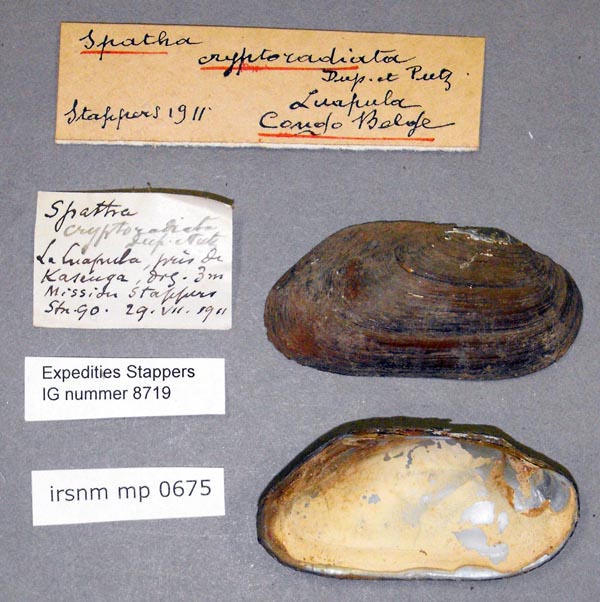 Spatha
cryptoradiata
Dup. et Putz.
Luapula
Stappers 1911
Congo Belge
Spatha
cryptoradiata
Dup. Putz
La Luapula, près de
Kasenga, drg. 3m
Mission Stappers
Stn. 90. 29. VII. 1911
Expedities Stappers
IG nummer 8719
irsnm mp 0675